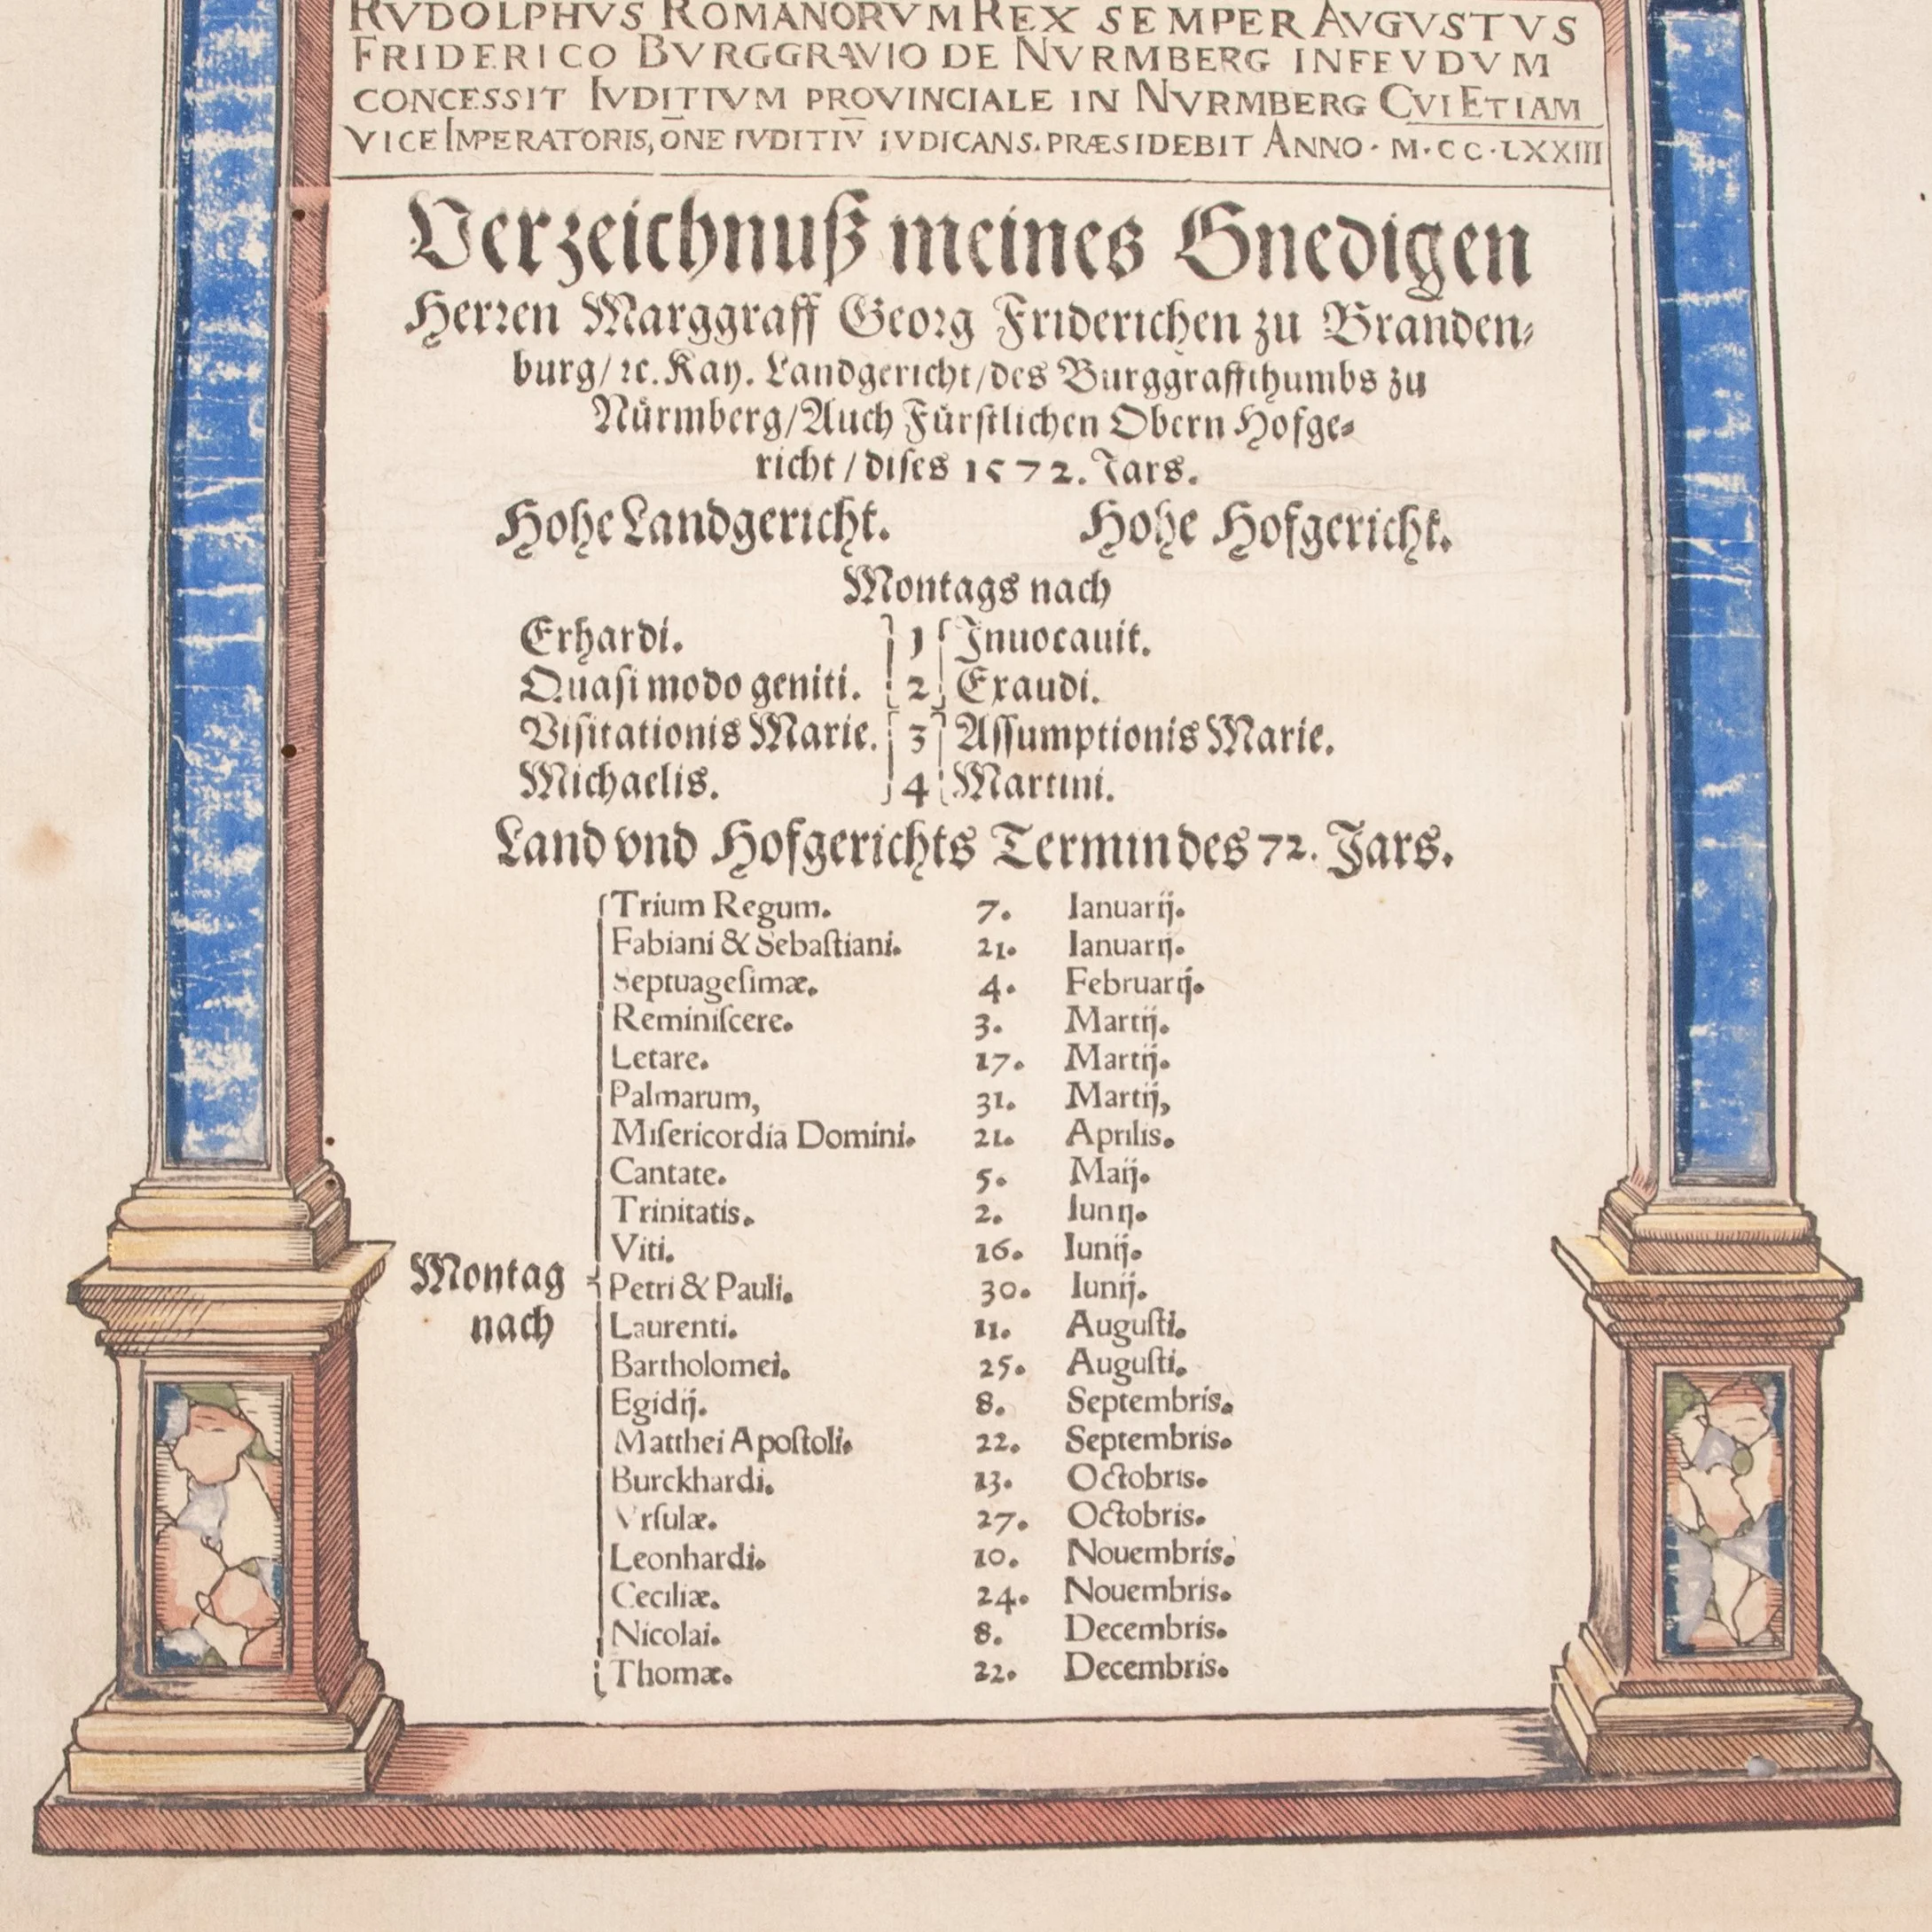 RVDOLPHVS ROMANORVM REX SEMPER AVGVSTVS
FRIDERICO BVRGGRAVIO DE NVRMBERG INFEVDVM
CONCESSIT IVDITIVM PROVINCIALE IN NVRMBERG CVI ETIAM
VICE IMPERATORIS, ŌNE IVDITIV̄ IVDICANS. PRÆSIDEBIT ANNO · M · CC · LXXIII
Verzeichnuß meines Gnedigen
Herꝛen Marggraff Geoꝛg Friderichen zu Branden⸗
burg/ ꝛc. Kay. Landgericht/des Burggraffthumbs zu
Nürmberg/Auch Fürſtlichen Obern Hofge⸗
richt / diſes 1572. Jars.
Hohe Landgericht. Hohe Hofgericht.
Montags nach
Erhardi. 1 Inuocauit.
Quaſi modo geniti. 2 Exaudi.
Viſitationis Marie. 3 Aſſumptionis Marie.
Michaelis. 4 Martini.
Land vnd Hofgerichts Termin des 72. Jars.
Trium Regum. 7. Ianuarij.
Fabiani & Sebaſtiani. 21. Ianuarij.
Septuageſimæ. 4. Februarij.
Reminiſcere. 3. Martij.
Letare. 17. Martij.
Palmarum, 31. Martij,
Miſericordia Domini. 21. Aprilis.
Cantate. 5. Maij.
Trinitatis. 2. Iunij.
Viti. 16. Iunij.
Montag
nach
Petri & Pauli. 30. Iunij.
Laurenti. 11. Auguſti.
Bartholomei. 25. Auguſti.
Egidij. 8. Septembris.
Matthei Apoſtoli. 22. Septembris.
Burckhardi. 13. Octobris.
Vrſulæ. 27. Octobris.
Leonhardi. 10. Nouembris.
Ceciliæ. 24. Nouembris.
Nicolai. 8. Decembris.
Thomæ. 22. Decembris.